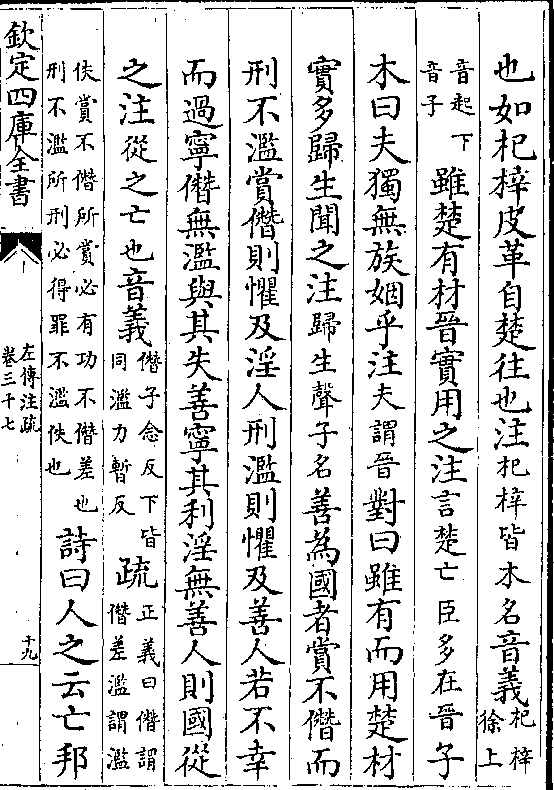 也如杞梓皮革自楚往也注杞梓皆木名音義杞梓徐上
音起下音子雖楚有材晉實用之注言楚亡臣多在晉子
木曰夫獨無族姻乎注夫謂晉對曰雖有而用楚材
實多歸生聞之注歸生聲子名善為國者賞不僭而
刑不濫賞僭則懼及淫人刑濫則懼及善人若不幸
而過寧僭無濫與其失善寧其利淫無善人則國從
之注從之亡也音義僭子念反下皆同濫力暫反疏正義曰僭謂僭差濫謂濫
佚賞不僭所賞必有功不僭差也刑不濫所刑必得罪不濫佚也詩曰人之云亡邦
欽定四庫全書
左傳注疏
卷三十七
十九